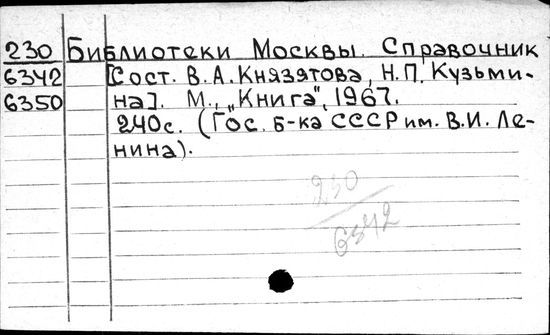 230 Библиотеки Москвы. Справочник
6342 [Сост. В.А. Князятова, Н.П. Кузьми-
6350 на]. М., „Книга", 1967.
240с. (Гос. б-ка СССР им. В.И. Ле-
нина).
230
6342